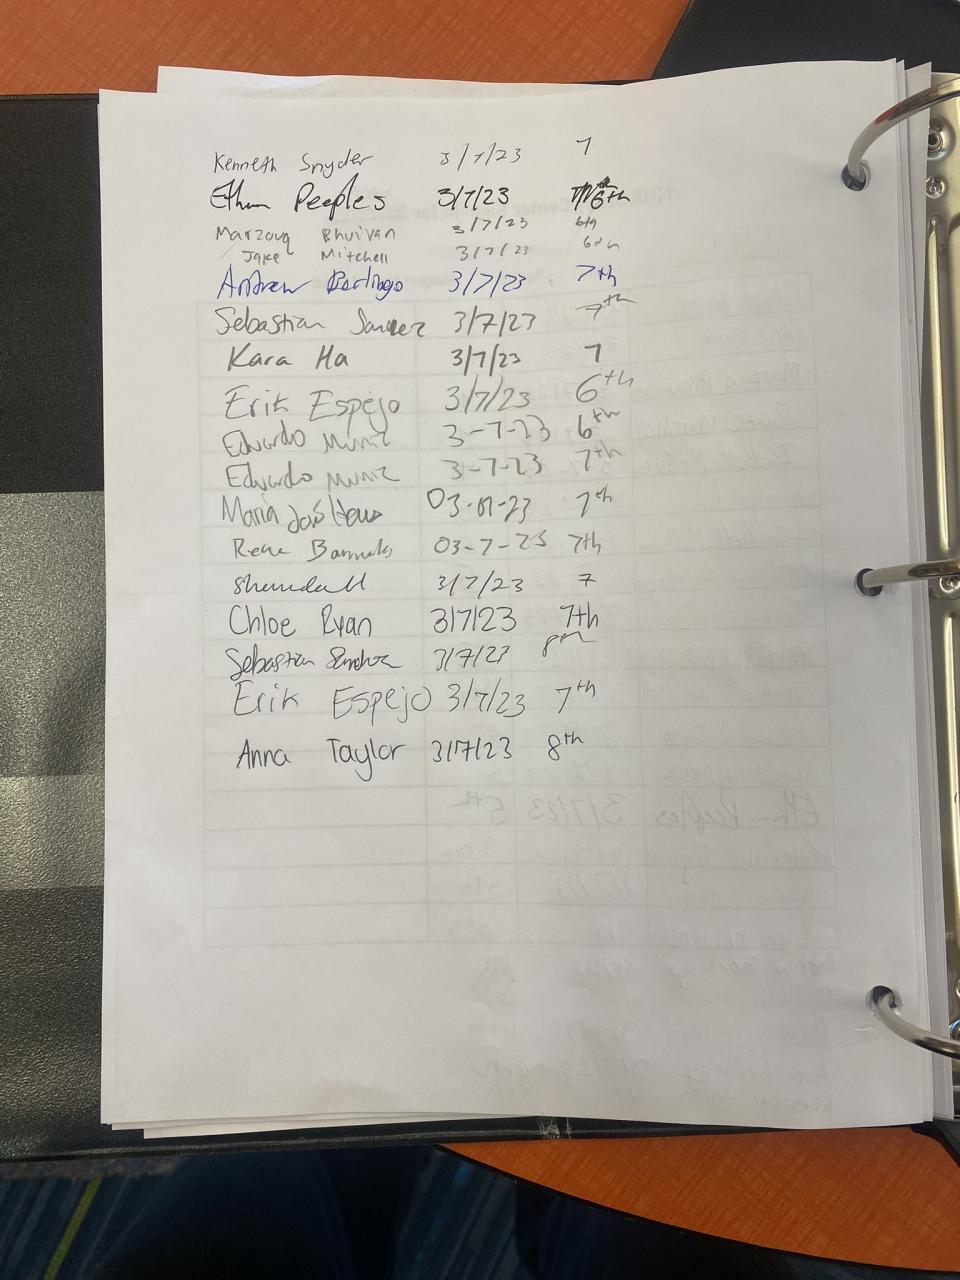 Kenneth Snyder 3/7/23 7
Ethan Peeples 3/7/23 6th
Marzouq Bhuiyan 3/7/23 6th
Jake Mitchell 3/7/23 6th
Andrew Berlingo 3/7/23 7th
Sebastian 3/7/23 7th
Kara Ha 3/7/23 7
Erik Espejo 3/7/23 6th
Eduardo Muniz 3-7-23 6th
Eduardo Muniz 3-7-23 7th
Maria 03-07-23 7th
Rene 03-7-23 7th
3/7/23 7
Chloe Ryan 3/7/23 7th
Sebastian Sanchez 3/7/23 8th
Erik Espejo 3/7/23 7th
Anna Taylor 3/7/23 8th